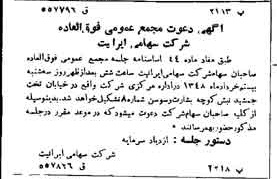 ب ۲۱۱۳ ت ۵۵۷۷۹۶
آگهی دعوت مجمع عمومی فوق‌العاده
شرکت سهامی ایرانیت
طبق مفاد ماده ۴۴ اساسنامه جلسه مجمع عمومی فوق‌العاده
صاحبان سهام شرکت سهامی ایرانیت ساعت شش بعدازظهر روز سه‌شنبه
بیستم خردادماه ۱۳۴۸ در اداره مرکزی شرکت واقع در خیابان تخت
جمشید نبش کوچه بشارت رسومن شماره ۸ تشکیل خواهد شد. بدینوسیله
از کلیه صاحبان سهام شرکت دعوت میشود که در موعد مقرر در جلسه
مذکور حضور بهمرسانند
دستور جلسه : ازدیاد سرمایه
شرکت سهامی ایرانیت
ب ۲۲۱۸ ت ۵۵۷۸۲۶